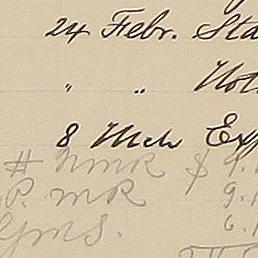 24 Febr. Sta
" " Not
8 Mch Exp
# NMR $ 9.1
P. MR 9.1
GMS. 6.1